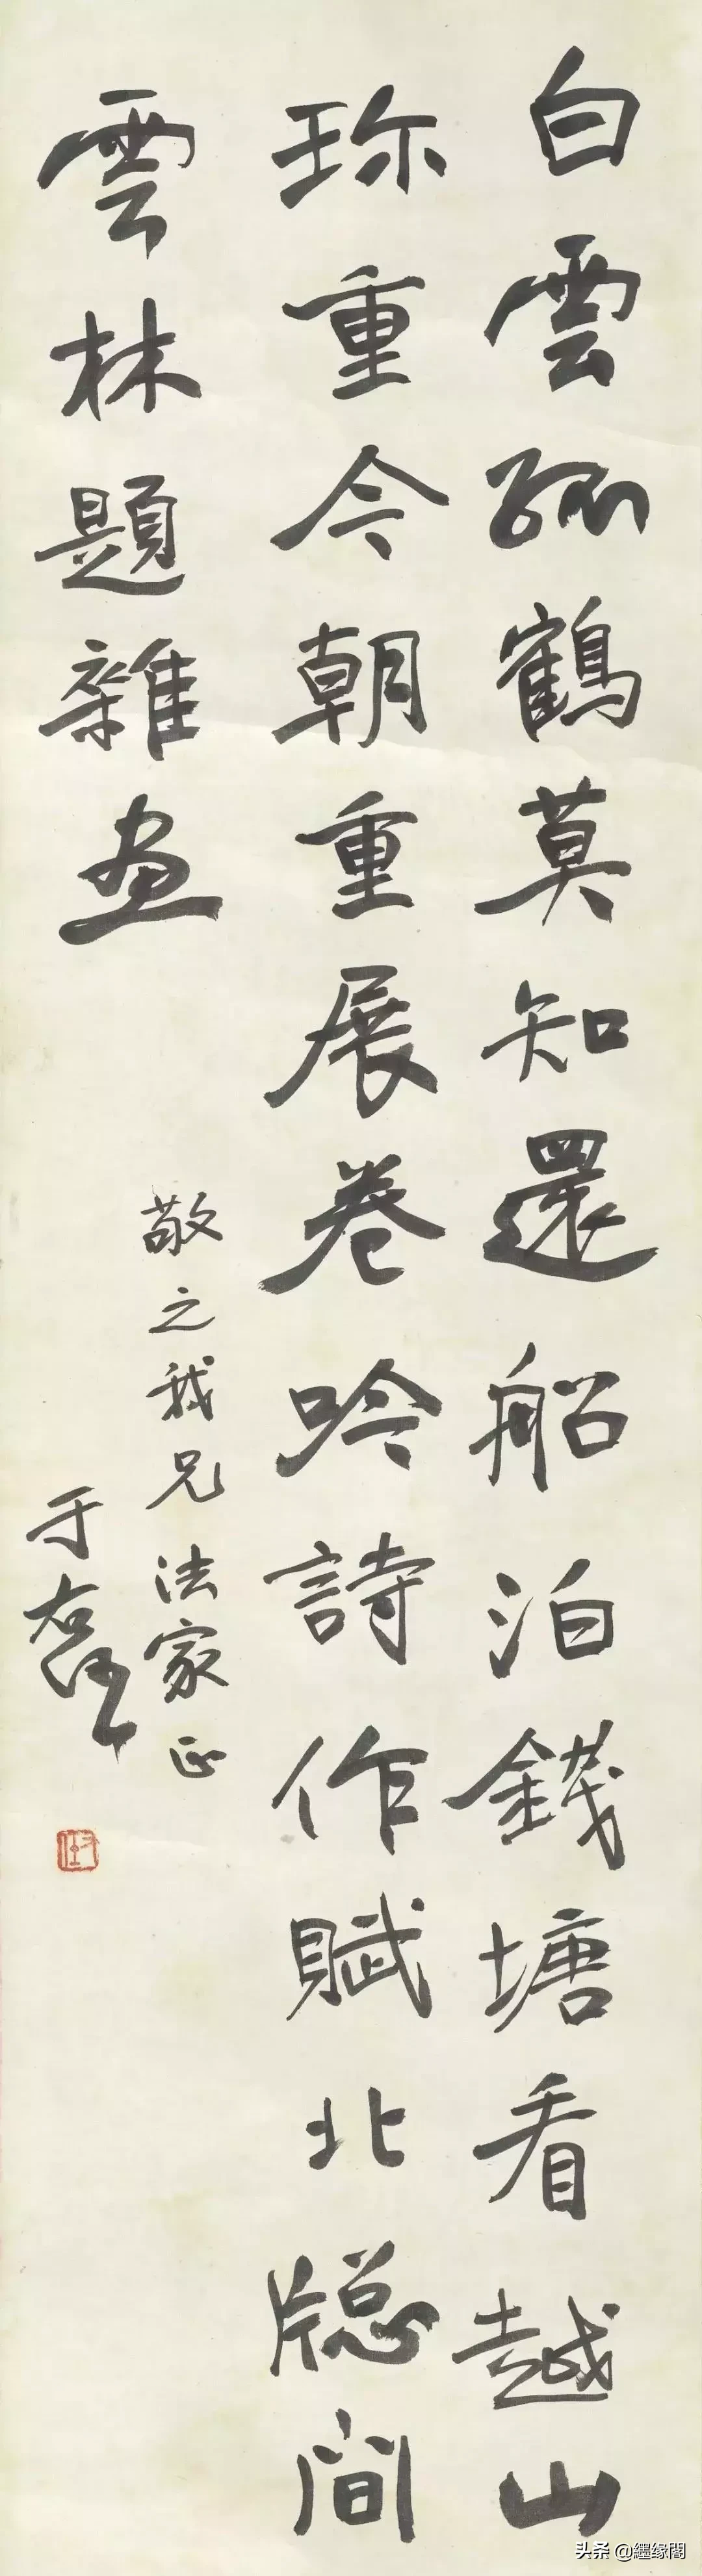 白雲孤鶴莫知還船泊錢塘看越山
珎重今朝重展卷吟詩作賦北牕間
雲林題雜画
敬之我兄法家正
于右任
右任
头条 @纒缘閣